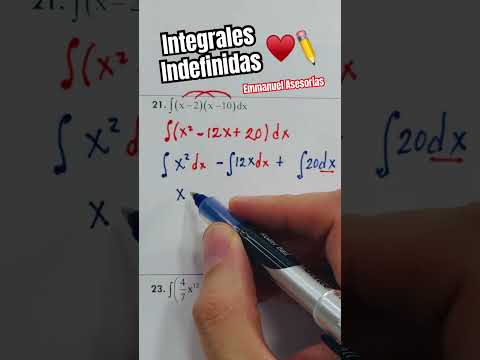 Integrales
Indefinidas ♥️✏️
Emmanuel Asesorías
21. ∫(x−2)(x−10)dx
∫(x² − 12x + 20) dx
∫ x² dx − ∫12x dx + ∫20dx
x
23. ∫(4/7 x¹²